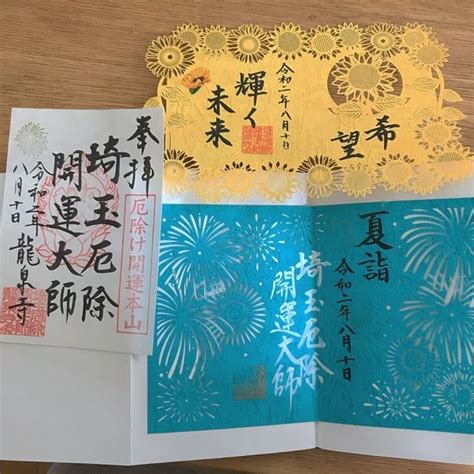 奉拝
厄除け開運本山
埼玉厄除
開運大師
令和二年
八月十日
龍泉寺
希望
輝く
未来
令和二年八月十日
夏詣
令和二年八月十日
埼玉厄除
開運大師